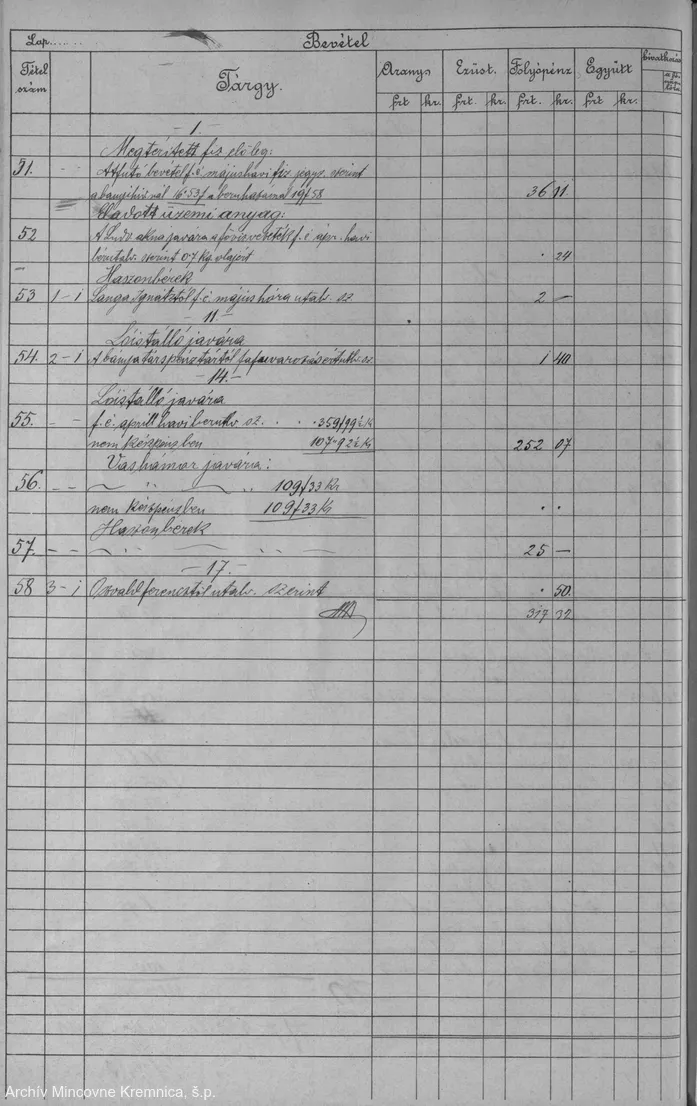 Lap....... Bevétel
Tétel szám Tárgy. Aranys Ezüst. Folyópénz Együtt hivatkozás
frt kr. frt. kr. frt. kr. frt kr.
— 1. —
Megtérített előleg:
51. - - bevétel f. é. május havi jegyz. szerint
16·53 f a 19 f 58 36 11.
anyag:
52 A javára f. é. ápr. havi
szerint 0·7 kg. olajért . 24
Haszonbérek
53 1-1 Langa Ignátztól f. é. május hóra utalv. sz. 2 —
— 11 —
Lóistálló javára
54. 2-1 A bányatárspénztártól 1 40
— 14. —
Lóistálló javára
55. - - f. é. aprill havi sz. . . . 359 f 99 ½ kr
nem készpénzben 107 " 92 ½ kr 252 07
Vashámor javára:
56. - - 109 f 33 kr
nem készpénzben 109 f 33 kr . .
Haszonbérek
57. - - 25 —
— 17. —
58 3-1 Oswald ferencztől utalv. szerint . 50.
317 32
Archív Mincovne Kremnica, š.p.